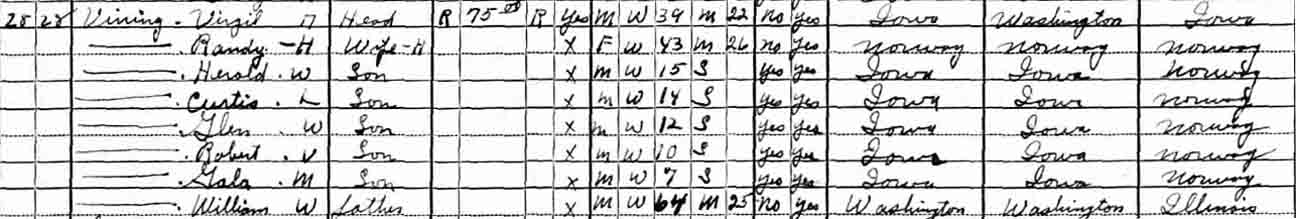 28 28 Vining - Virgil A Head R 75.00 R Yes M W 39 M 22 no yes Iowa Washington Iowa
Randy - H Wife-H X F W 43 M 26 no yes Norway Norway Norway
Herold . W Son X M W 15 S yes yes Iowa Iowa Norway
Curtis . L Son X M W 14 S yes yes Iowa Iowa Norway
Glen . W Son X M W 12 S yes yes Iowa Iowa Norway
Robert . V Son X M W 10 S yes yes Iowa Iowa Norway
Gala . M Son X M W 7 S yes yes Iowa Iowa Norway
William W father X M W 64 M 25 no yes Washington Washington Illinois